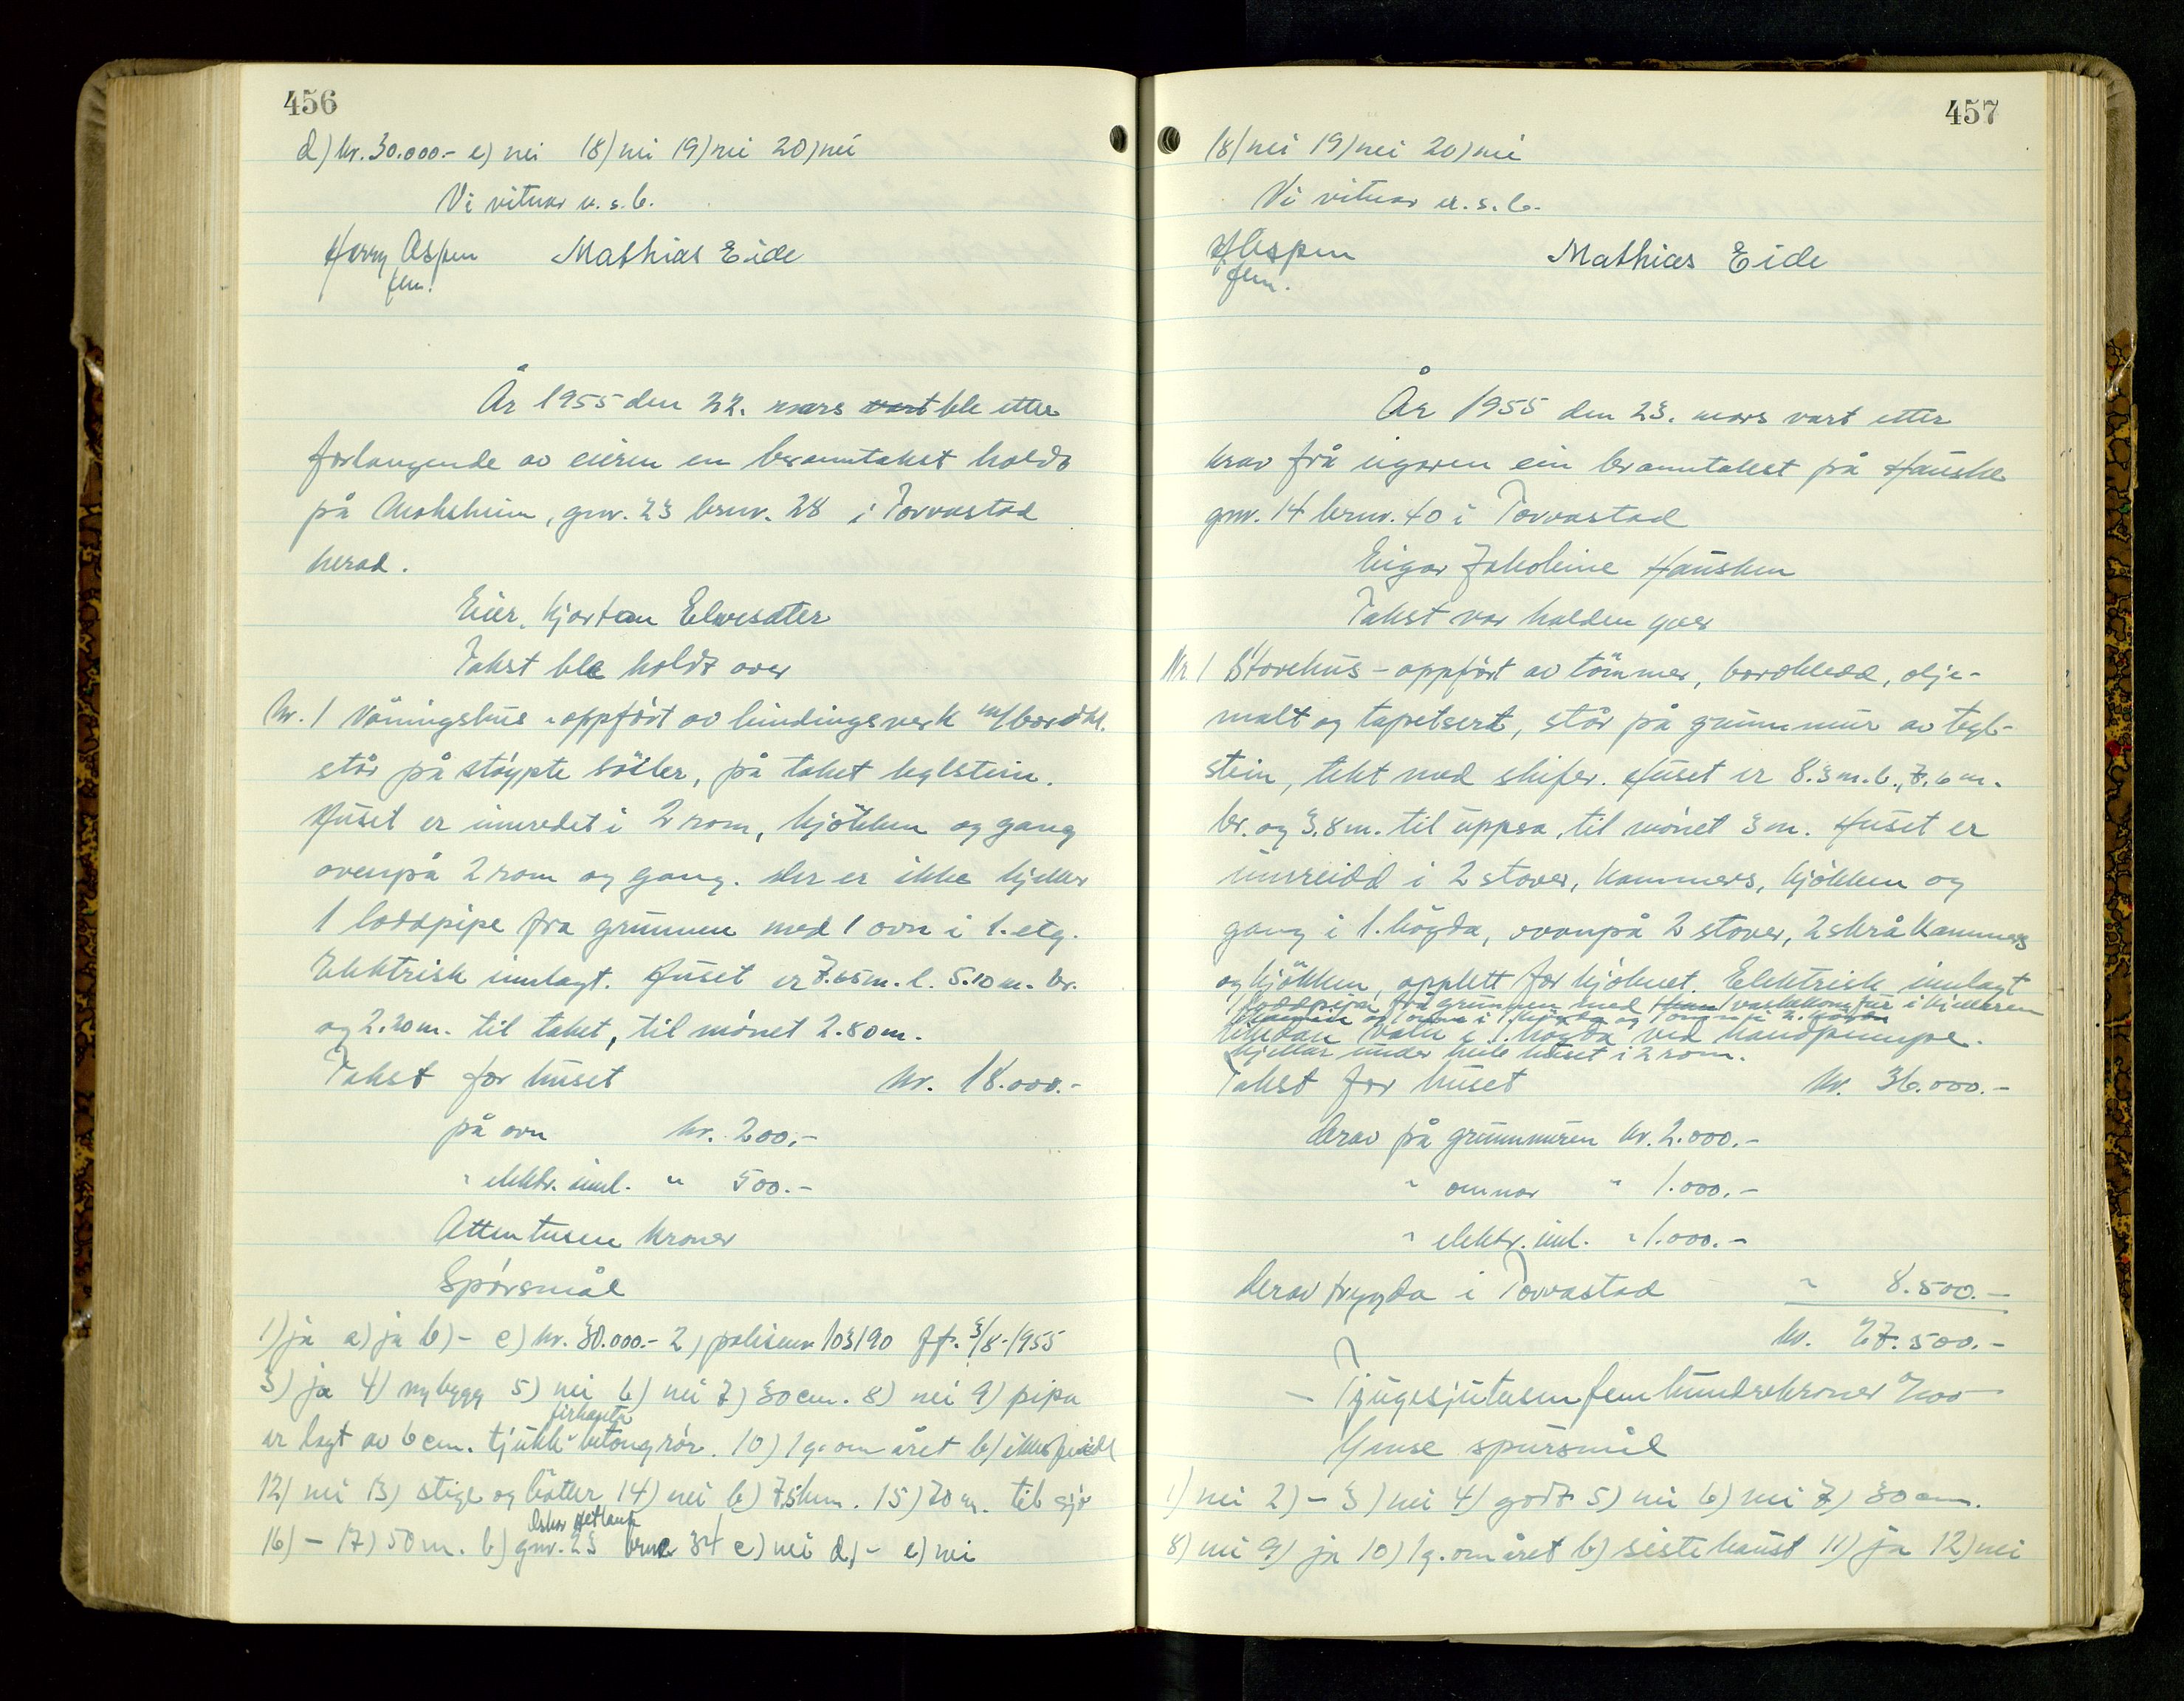 456
d) kr. 30.000.- e) nei 18) nei 19) nei 20) nei
Vi vitnar u. s. b.
Harry Aspen Mathias Eide
lm.
År 1955 den 22. mars vart ble etter
forlangende av eieren en branntakst holdt
på gnr. 23 brnr. 28 i Torvastad
herad.
Eier. Kjartan Elvesæter
Takst ble holdt over
Nr. 1 Våningshus - oppført av bindingsverk m/bordkl.
står på støypte söiler, på taket teglstein.
Huset er innredet i 2 rom, kjökken og gang
ovenpå 2 rom og gang. Der er ikke kjeller
1 loddpipe fra grunnen med 1 ovn i 1. etg.
Elektrisk innlagt. Huset er 7.65m. l. 5.10 m. br.
og 2.20m. til taket, til mönet 2.80m.
Takst for huset kr. 18.000.-
på ovn kr. 200.-
" elektr. innl. " 500.-
Attentusen kroner
Spörsmål
1) ja a) ja b) - c) kr. 30.000.- 2) polisenr 103190 ff. 3/8-1955
3) ja 4) nybygg 5) nei 6) nei 7) 30 cm. 8) nei 9) pipa
firkanta
er lagt av 6 cm. tjukk betongrör. 10) 1 g. om året b) ikke feidt
12) nei 13) stige og bötter 14) nei b) 7.5km. 15) 20 m. til sjö
16) - 17) 50 m. b) gnr. 23 brnr 34 c) nei d) - e) nei
457
18) nei 19) nei 20) nei
Vi vitnar u. s. b.
HAspen Mathias Eide
lm.
År 1955 den 23. mars vart etter
krav frå eigaren ein branntakst på Hauske
gnr. 14 brnr. 40 i Torvastad
Eigar Jakobine Hausken
Takst var halden yver
Nr 1 Stovehus - oppfört av tömmer, bordkledd, olje-
malt og tapetsert, står på grunnmur av tegl-
stein, tekt med skifer. Huset er 8.3 m. l., 7.6 m.
br. og 3.8 m. til uppsa, til mönet 3 m. Huset er
innreidd i 2 stover, kammers, kjökken og
gang i 1. högda, ovanpå 2 stover, 2 skråkammers
og kjökken, opplett for kjöknet. Elektrisk innlagt
1 loddpipa frå grunnen med 1 vaskekomfur i kjellaren
1 omn i 1. högda og 1 omn i 2. högda
vatn i 1. högda ved handpumpe.
Kjellar under heile huset i 2 rom.
Takst for huset kr. 36.000.-
Derav på grunnmuren kr. 2.000.-
" omnar " 1.000.-
" elektr. innl. " 1.000.-
Derav trygda i Torvastad " 8.500.-
kr. 27.500.-
- Tjugesjutusen fem hundre kroner 7/100 -
Ymse spursmål
1) nei 2) - 3) nei 4) godt 5) nei 6) nei 7) 30 cm.
8) nei 9) ja 10) 1 g. om året b) siste haust 11) ja 12) nei